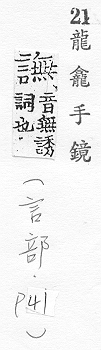 21 龍龕手鏡
譕音無誘
言詞也
（言部．P41）